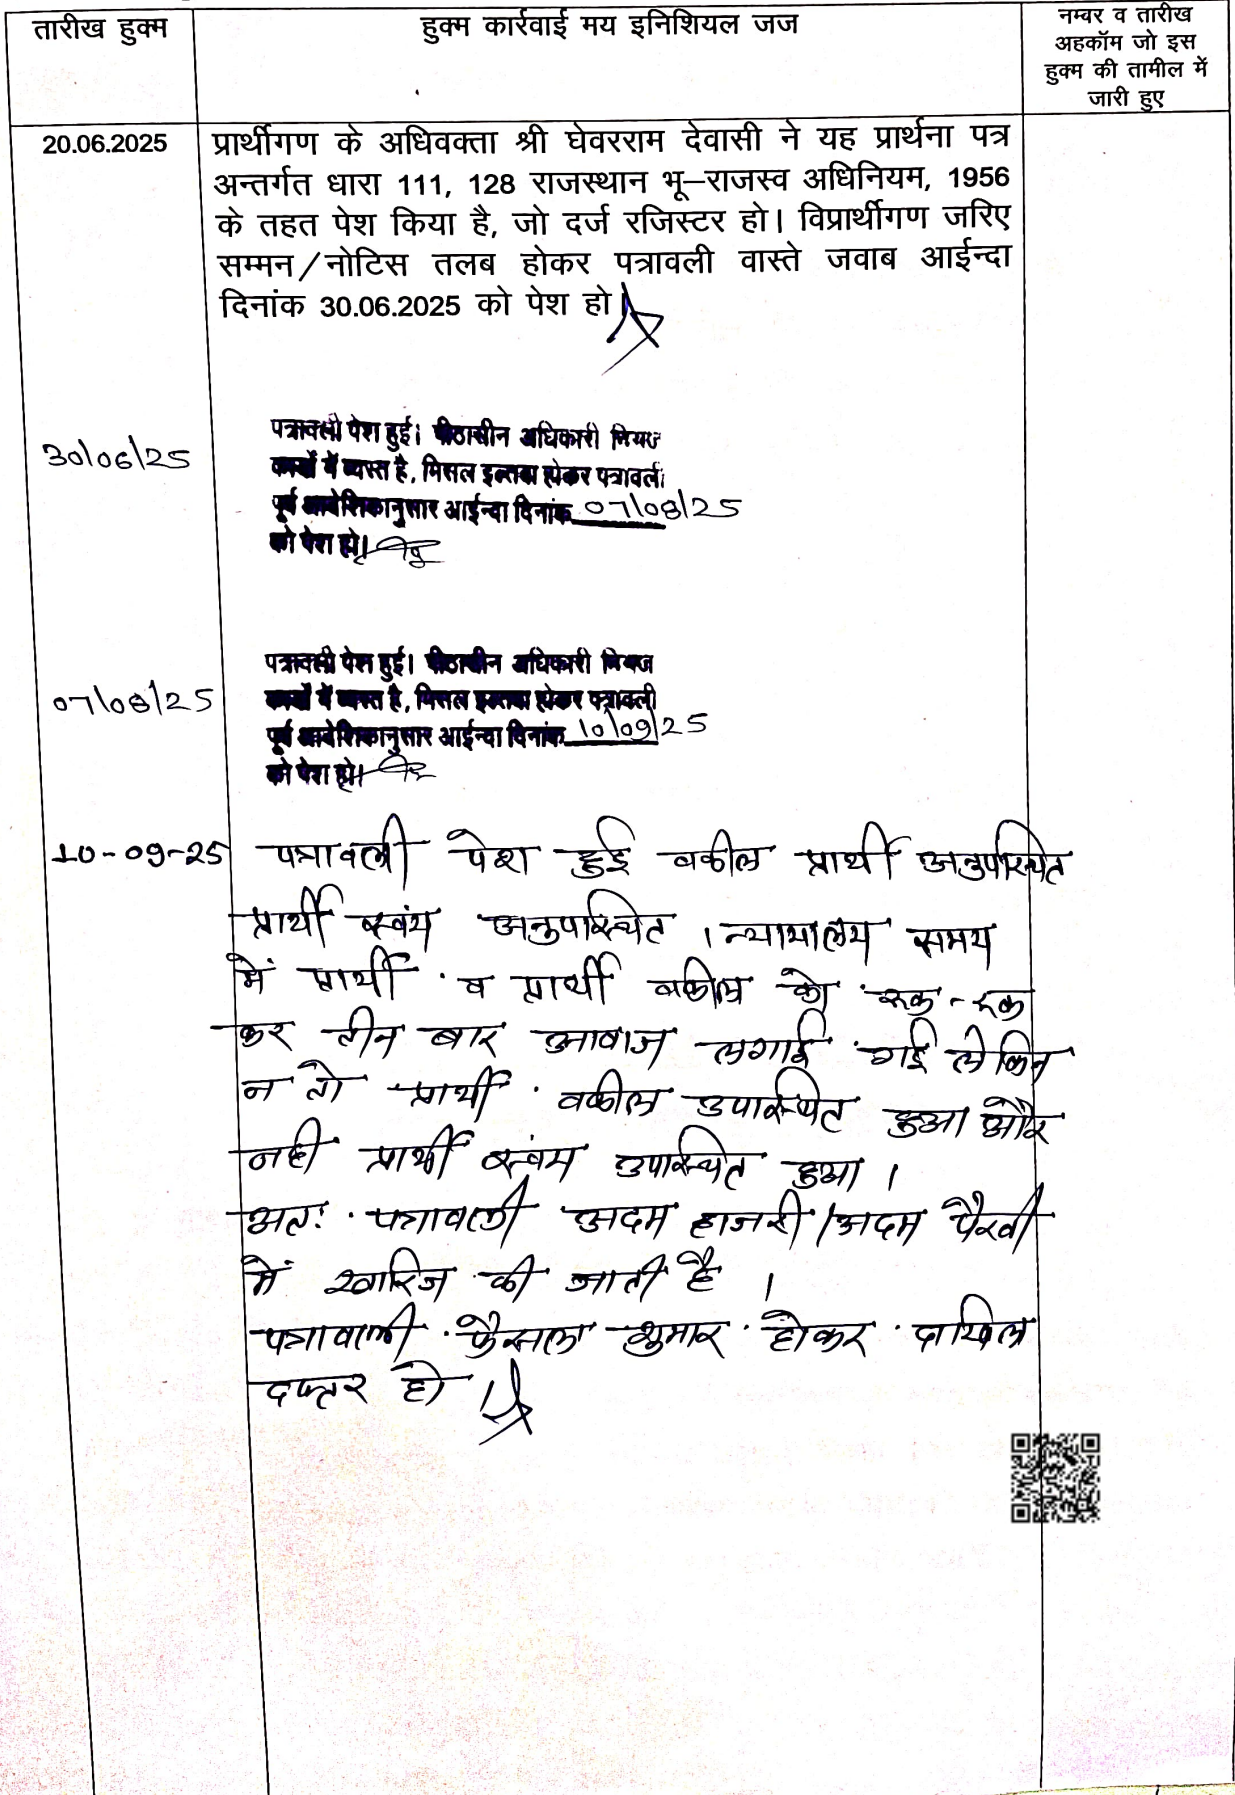 तारीख हुक्म
हुक्म कार्रवाई मय इनिशियल जज
नम्बर व तारीख
अहकॉम जो इस
हुक्म की तामील में
जारी हुए
20.06.2025
प्रार्थीगण के अधिवक्ता श्री घेवरराम देवासी ने यह प्रार्थना पत्र
अन्तर्गत धारा 111, 128 राजस्थान भू–राजस्व अधिनियम, 1956
के तहत पेश किया है, जो दर्ज रजिस्टर हो। विप्रार्थीगण जरिए
सम्मन/नोटिस तलब होकर पत्रावली वास्ते जवाब आईन्दा
दिनांक 30.06.2025 को पेश हो।
30/06/25
पत्रावली पेश हुई। पीठासीन अधिकारी
कार्यो में व्यस्त है, मिसल इल्तवा होकर पत्रावली
पूर्व आदेशिकानुसार आईन्दा दिनांक 07/08/25
को पेश हो।
07/08/25
पत्रावली पेश हुई। पीठासीन अधिकारी
कार्यो में व्यस्त है, मिसल इल्तवा होकर पत्रावली
पूर्व आदेशिकानुसार आईन्दा दिनांक 10/09/25
को पेश हो।
10-09-25
पत्रावली पेश हुई वकील प्रार्थी अनुपस्थित
प्रार्थी स्वंय अनुपस्थित । न्यायालय समय
में प्रार्थी व प्रार्थी वकील को रूक-रूक
कर तीन बार आवाज लगाई गई लेकिन
न तो प्रार्थी वकील उपस्थित हुआ और
नही प्रार्थी स्वंय उपस्थित हुआ ।
अतः पत्रावली अदम हाजरी/अदम पैरवी
में खारिज की जाती है ।
पत्रावली फैसला शुमार होकर दाखिल
दफ्तर हो ।